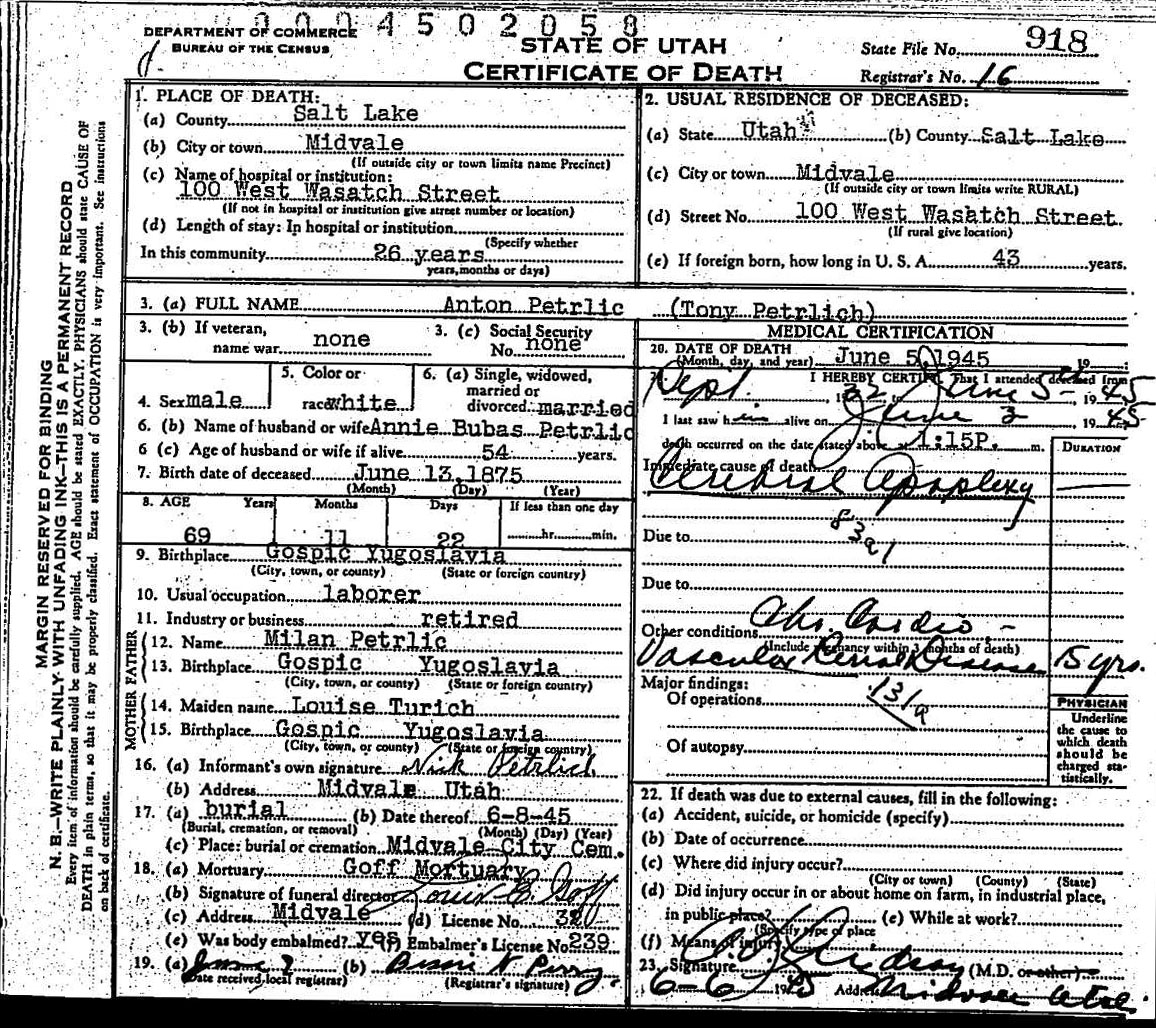 0 0 0 0 4 5 0 2 0 5 8
DEPARTMENT OF COMMERCE
BUREAU OF THE CENSUS
STATE OF UTAH
CERTIFICATE OF DEATH
State File No. 918
Registrar's No. 16
MARGIN RESERVED FOR BINDING
N. B.—WRITE PLAINLY WITH UNFADING INK—THIS IS A PERMANENT RECORD
Every item of information should be carefully supplied. AGE should be stated EXACTLY. PHYSICIANS should state CAUSE OF
DEATH in plain terms, so that it may be properly classified. Exact statement of OCCUPATION is very important. See instructions
on back of certificate.
1. PLACE OF DEATH:
(a) County Salt Lake
(b) City or town Midvale
(If outside city or town limits name Precinct)
(c) Name of hospital or institution:
100 West Wasatch Street
(If not in hospital or institution give street number or location)
(d) Length of stay: In hospital or institution
(Specify whether
In this community 26 years
years, months or days)
2. USUAL RESIDENCE OF DECEASED:
(a) State Utah (b) County Salt Lake
(c) City or town Midvale
(If outside city or town limits write RURAL)
(d) Street No. 100 West Wasatch Street
(If rural give location)
(e) If foreign born, how long in U. S. A. 43 years.
3. (a) FULL NAME Anton Petrlic (Tony Petrlich)
3. (b) If veteran, name war none
3. (c) Social Security No. none
4. Sex male
5. Color or race white
6. (a) Single, widowed, married or divorced married
6. (b) Name of husband or wife Annie Bubas Petrlic
6 (c) Age of husband or wife if alive 54 years.
7. Birth date of deceased June 13, 1875
(Month) (Day) (Year)
8. AGE Years Months Days If less than one day
69 11 22 hr. min.
9. Birthplace Gospic Yugoslavia
(City, town, or county) (State or foreign country)
10. Usual occupation laborer
11. Industry or business retired
FATHER
12. Name Milan Petrlic
13. Birthplace Gospic Yugoslavia
(City, town, or county) (State or foreign country)
MOTHER
14. Maiden name Louise Turich
15. Birthplace Gospic Yugoslavia
(City, town, or county) (State or foreign country)
16. (a) Informant's own signature Nick Petrlich
(b) Address Midvale Utah
17. (a) burial (b) Date thereof 6-8-45
(Burial, cremation, or removal) (Month) (Day) (Year)
(c) Place: burial or cremation Midvale City Cem.
18. (a) Mortuary Goff Mortuary
(b) Signature of funeral director Louis B. Goff
(c) Address Midvale (d) License No. 320
(e) Was body embalmed? yes (f) Embalmer's License No. 239
19. (a) June 7 (b) Bessie N Perry
(Date received local registrar) (Registrar's signature)
MEDICAL CERTIFICATION
20. DATE OF DEATH
(Month, day, and year) June 5, 1945 19
I HEREBY CERTIFY That I attended deceased from
Sept. 1932 to June 5 - 1945
I last saw him alive on June 3 1945
death occurred on the date stated above at 1:15P. m.
DURATION
Immediate cause of death
Cerebral Apoplexy
83a1
Due to
Due to
Other conditions Chr. Cardio -
(Include pregnancy within 3 months of death)
Vascular Renal Disease 15 yrs.
131a
Major findings:
Of operations
Of autopsy
PHYSICIAN
Underline
the cause to
which death
should be
charged sta-
tistically.
22. If death was due to external causes, fill in the following:
(a) Accident, suicide, or homicide (specify)
(b) Date of occurrence
(c) Where did injury occur?
(City or town) (County) (State)
(d) Did injury occur in or about home on farm, in industrial place,
in public place? (e) While at work?
(Specify type of place
(f) Means of injury
23. Signature (M.D. or other)
6-6 1945 Address Midvale Utah